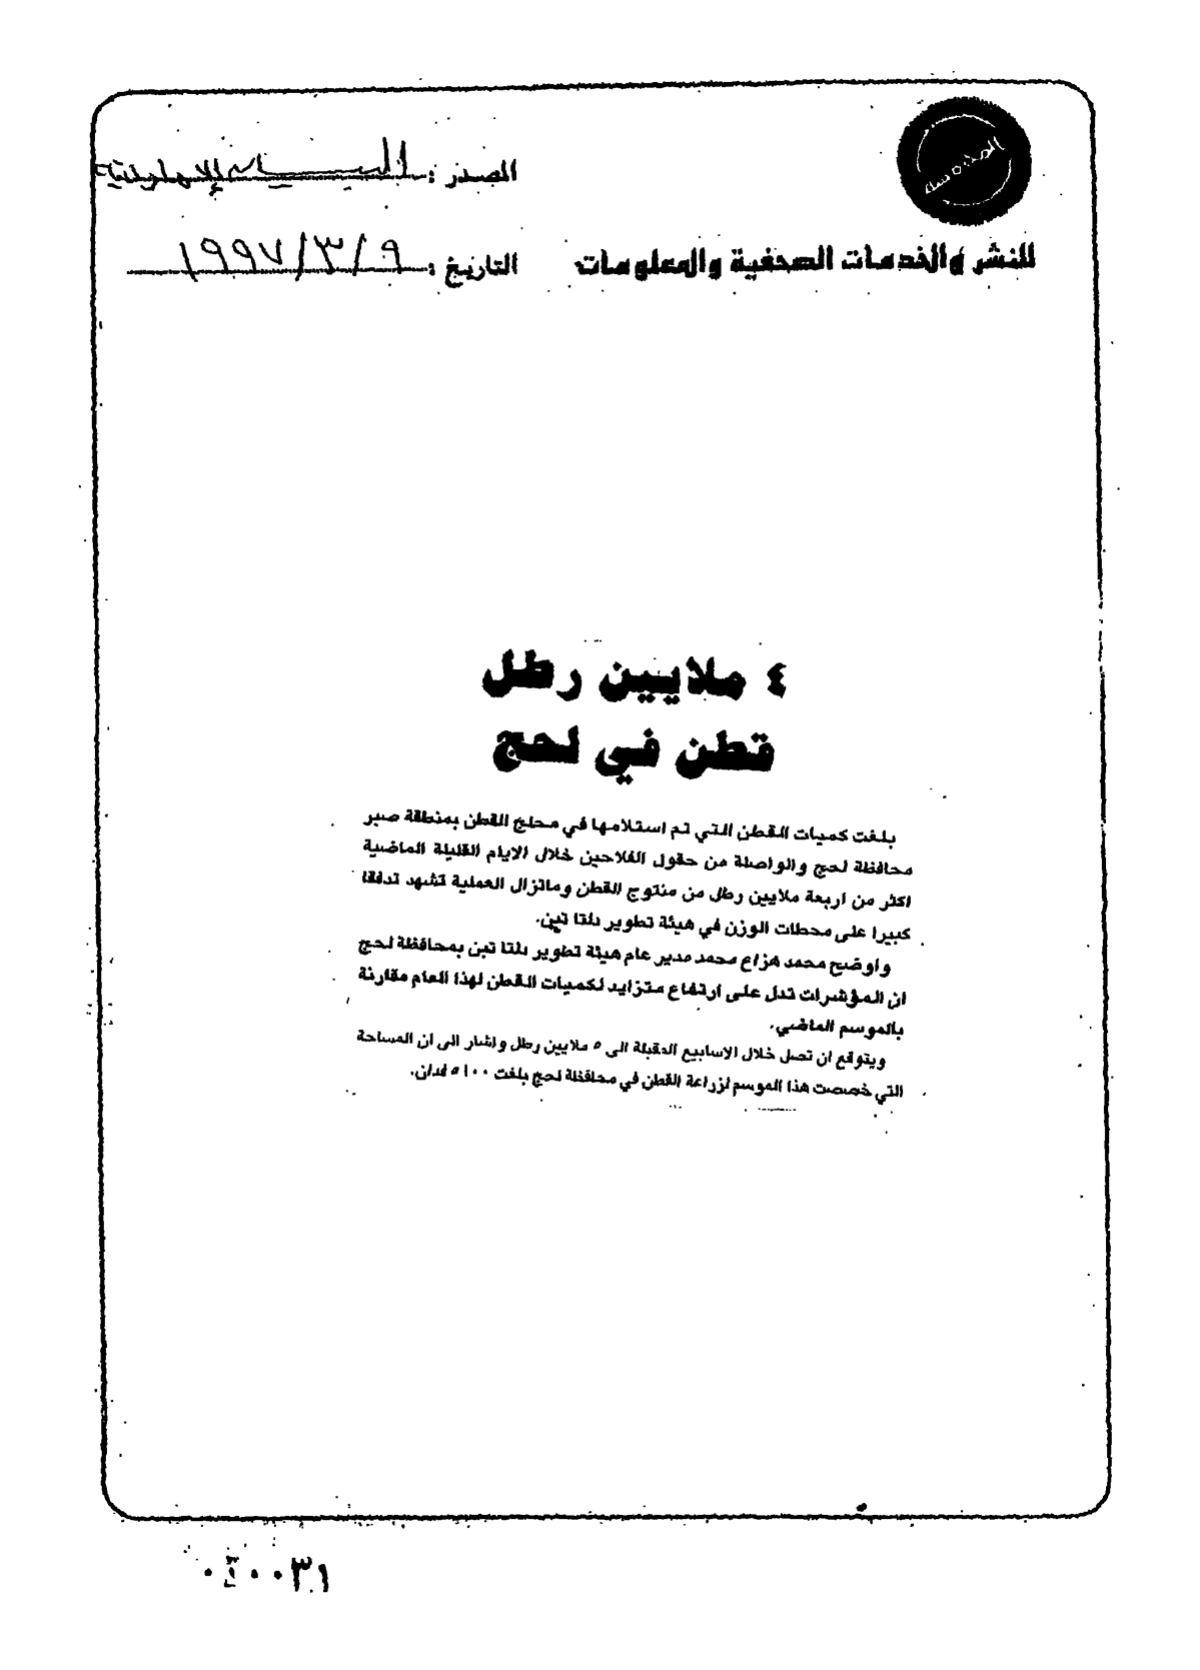 المصدر : البيان الإماراتية
للنشر والخدمات الصحفية والمعلومات
التاريخ : ١٩٩٧/٣/٩
٤ ملايين رطل
قطن في لحج
بلغت كميات القطن التي تم استلامها في محلج القطن بمنطقة صبر
محافظة لحج والواصلة من حقول الفلاحين خلال الايام القليلة الماضية
اكثر من اربعة ملايين رطل من منتوج القطن وماتزال العملية تشهد تدفقا
كبيرا على محطات الوزن في هيئة تطوير دلتا تبن.
واوضح محمد هزاع محمد مدير عام هيئة تطوير دلتا تبن بمحافظة لحج
ان المؤشرات تدل على ارتفاع متزايد لكميات القطن لهذا العام مقارنة
بالموسم الماضي.
ويتوقع ان تصل خلال الاسابيع المقبلة الى ٥ ملايين رطل واشار الى ان المساحة
التي خصصت هذا الموسم لزراعة القطن في محافظة لحج بلغت ٥١٠٠ فدان.